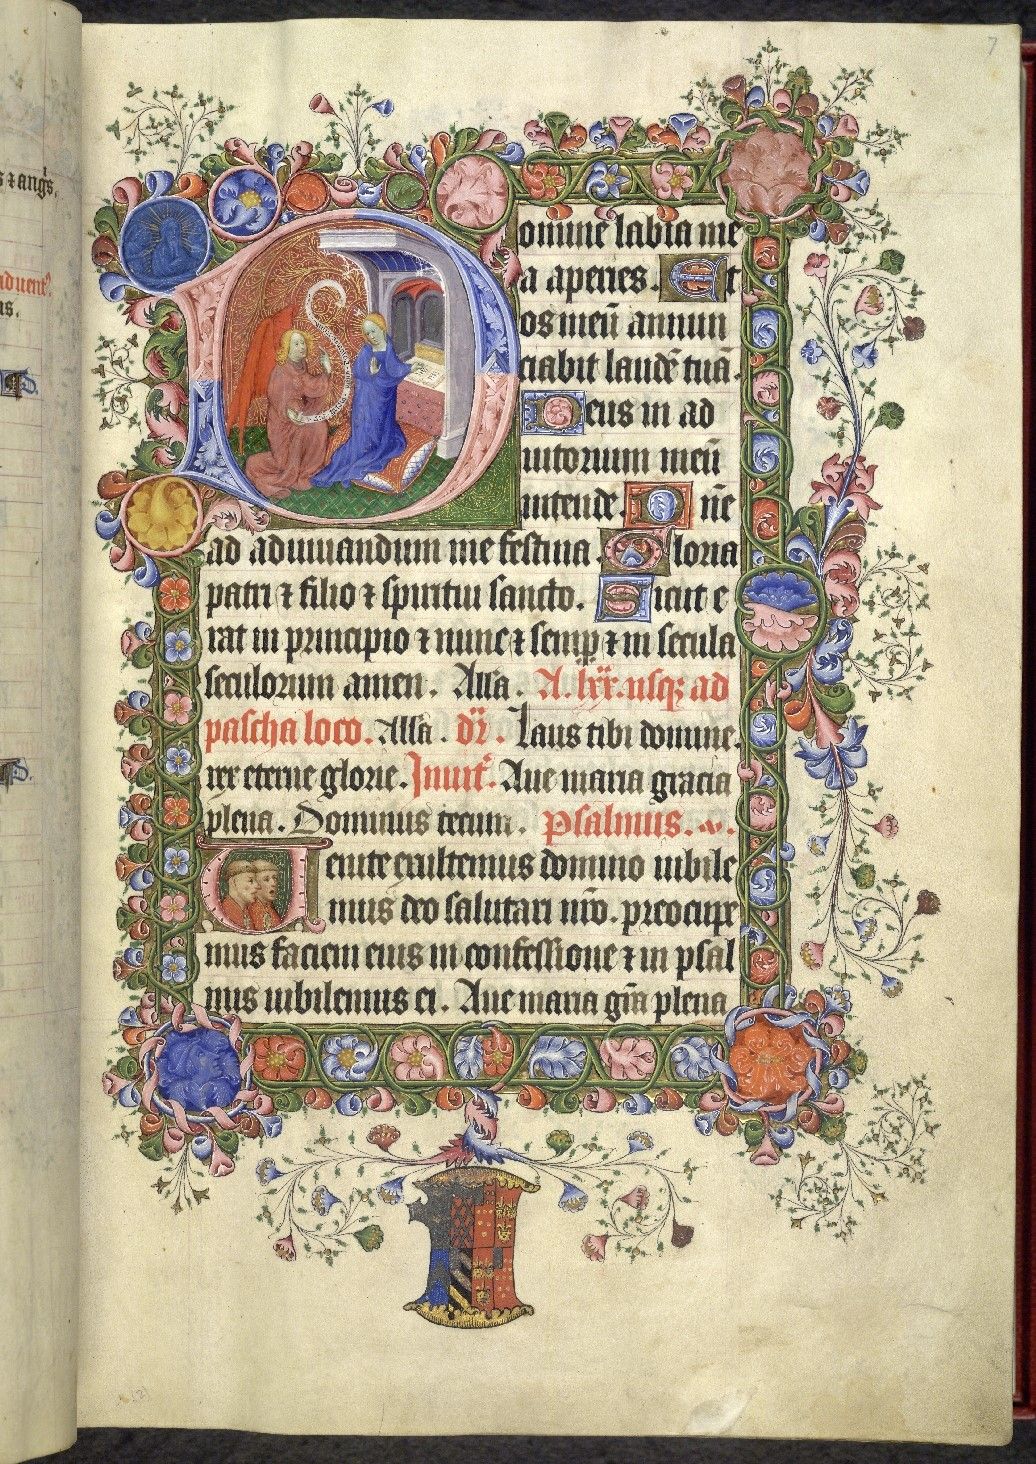 7
s ⁊ angłs.
aduent͛.
as.
Domine labia me
a aperies. Et
os meū annun
ciabit laudē tuā.
Deus in ad
iutorium meū
intende. Dn̄e
ad adiuuandum me festina. Gloria
patri ⁊ filio ⁊ spiritui sancto. Sicut e
rat in principio ⁊ nunc ⁊ semꝑ ⁊ in secula
seculorum amen. Alla. A. lxx. usqꝫ ad
pascha loco. Alla. dr̄. Laus tibi domine.
rex eterne glorie. Inuit͛. Aue maria gracia
plena. Dominus tecum. psalmus.
Uenite exultemus domino iubile
mus deo salutari nr̄o. preocupe
mus faciem eius in confessione ⁊ in psal
mis iubilemus ei. Aue maria grā plena
(2)